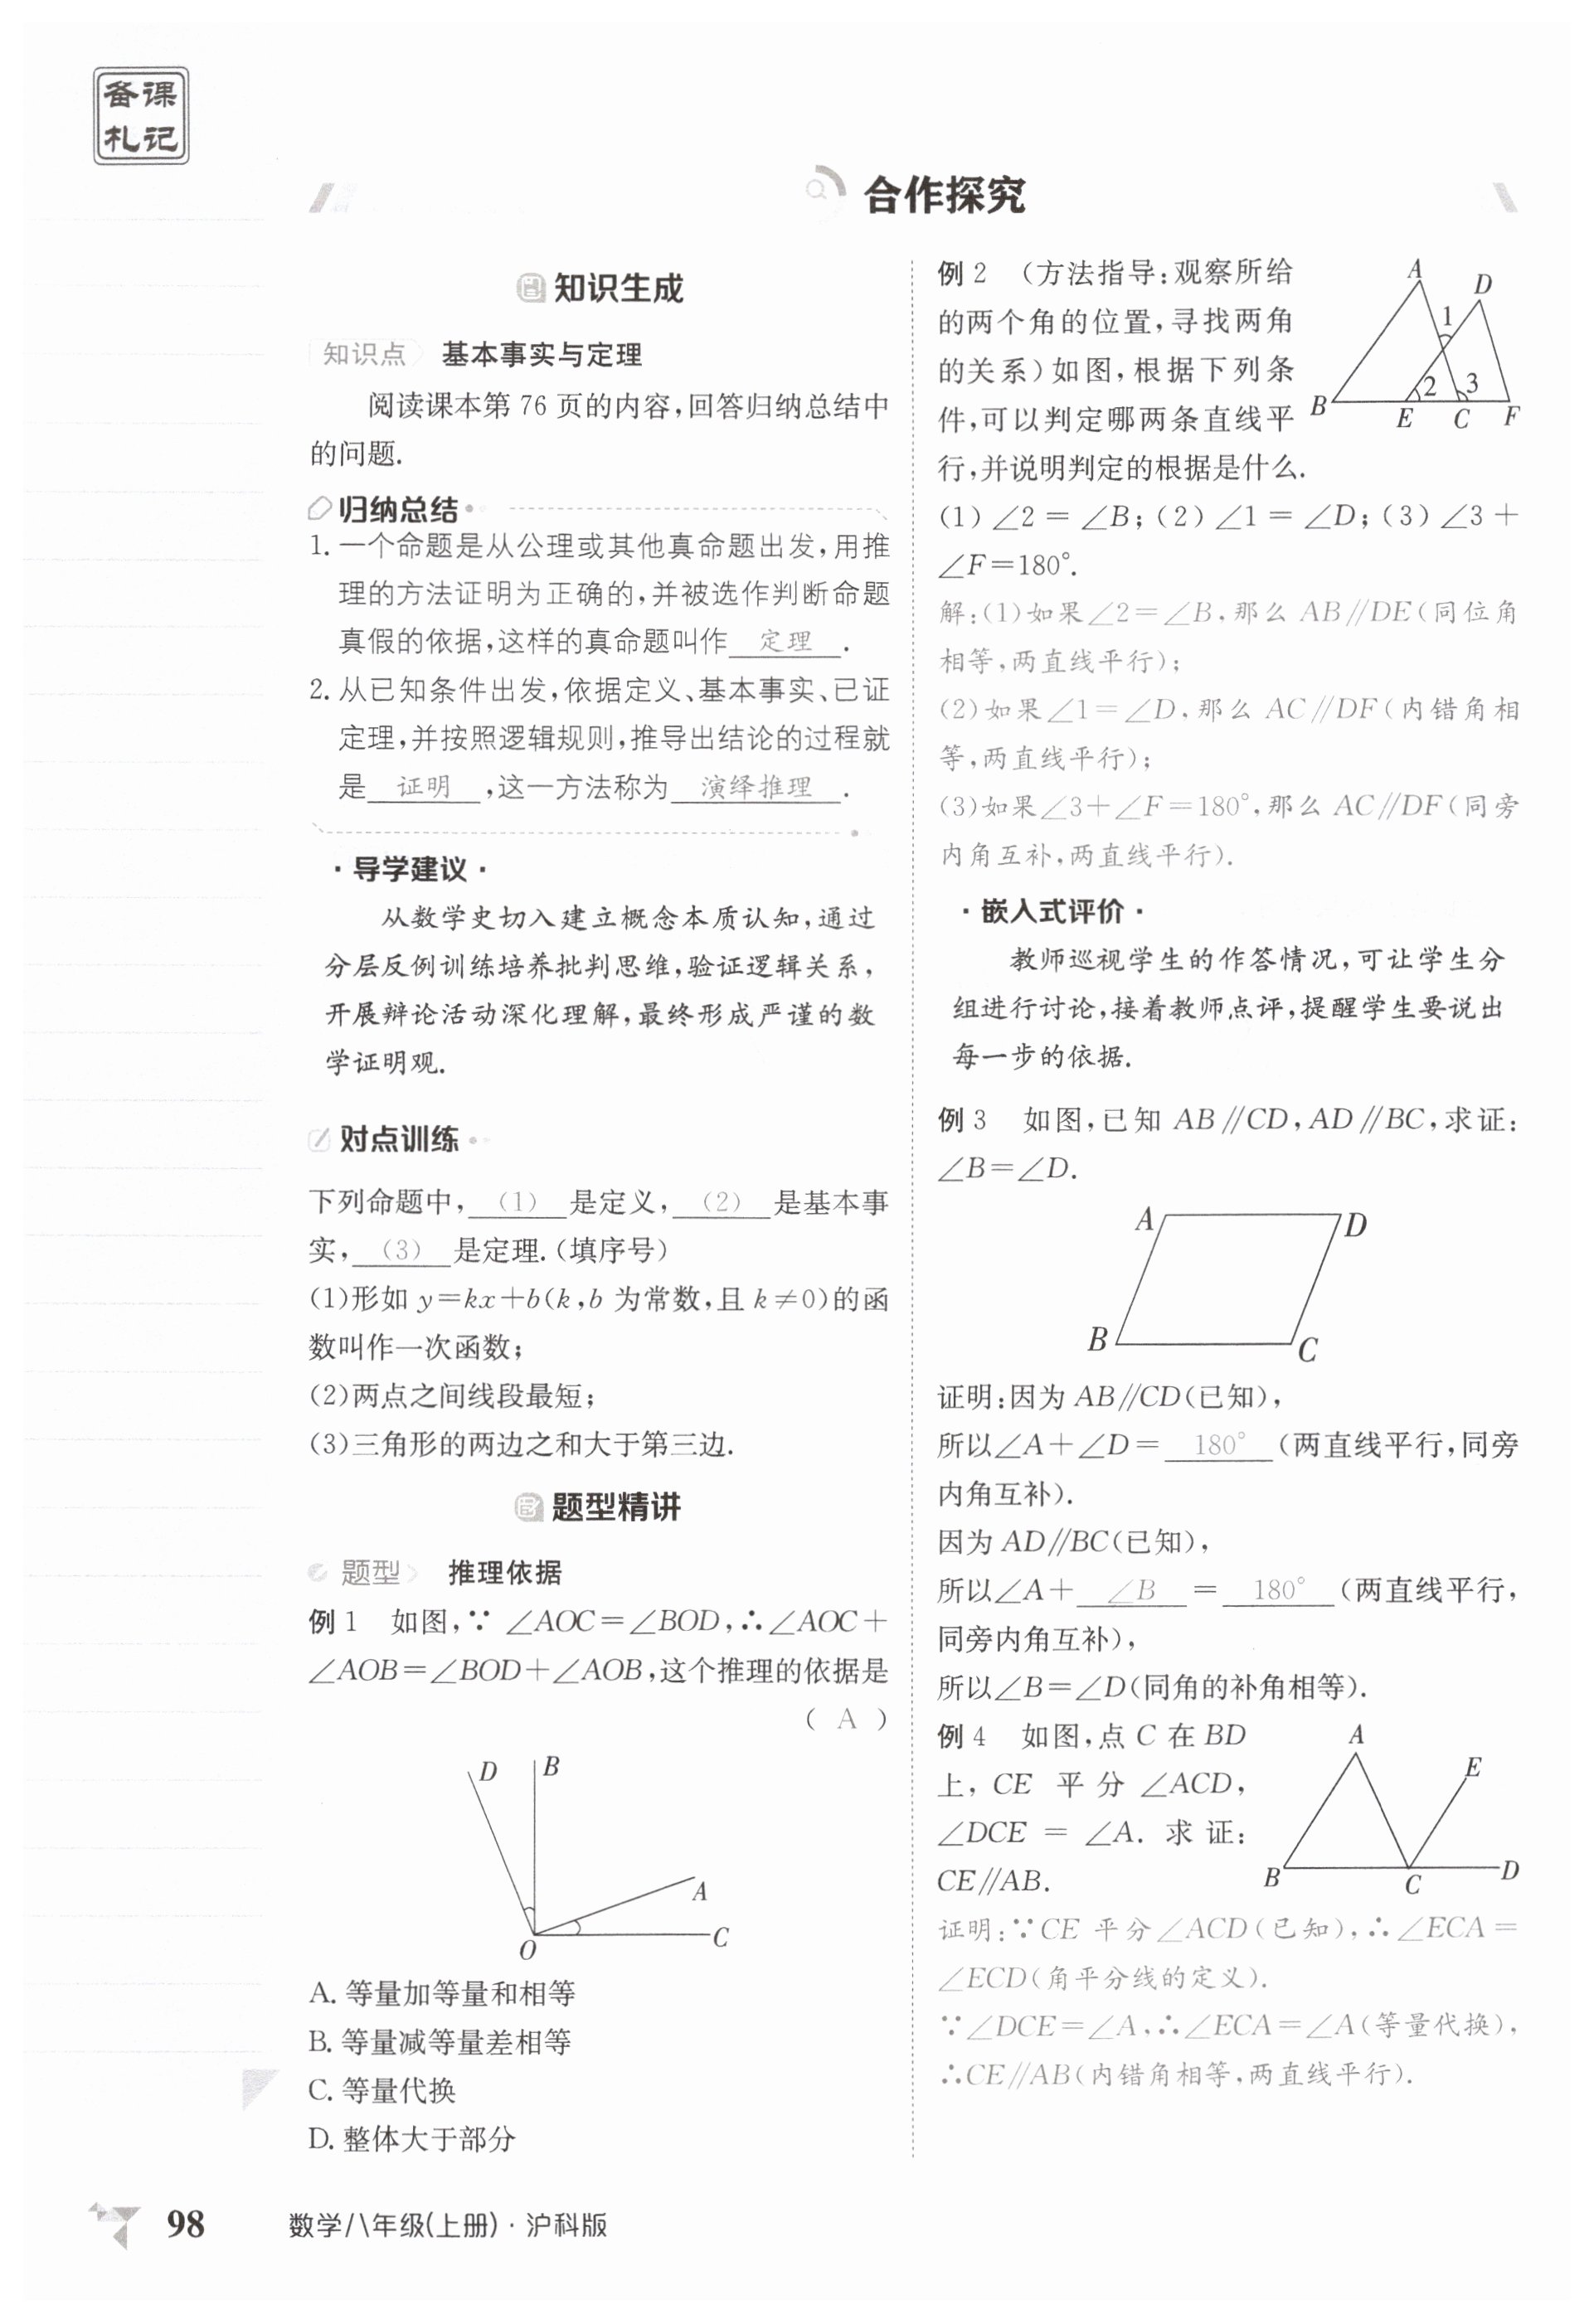 备课
札记
合作探究
知识生成
知识点 基本事实与定理
阅读课本第 76 页的内容,回答归纳总结中
的问题.
归纳总结
1. 一个命题是从公理或其他真命题出发,用推
理的方法证明为正确的,并被选作判断命题
真假的依据,这样的真命题叫作 定理 .
2. 从已知条件出发,依据定义、基本事实、已证
定理,并按照逻辑规则,推导出结论的过程就
是 证明 ,这一方法称为 演绎推理 .
·导学建议·
从数学史切入建立概念本质认知,通过
分层反例训练培养批判思维,验证逻辑关系,
开展辩论活动深化理解,最终形成严谨的数
学证明观.
对点训练
下列命题中, (1) 是定义, (2) 是基本事
实, (3) 是定理.(填序号)
(1)形如 y=kx+b(k,b 为常数,且 k≠0)的函
数叫作一次函数;
(2)两点之间线段最短;
(3)三角形的两边之和大于第三边.
题型精讲
题型 推理依据
例 1 如图,∵ ∠AOC=∠BOD,∴∠AOC+
∠AOB=∠BOD+∠AOB,这个推理的依据是
( A )
D B
A
C
O
A. 等量加等量和相等
B. 等量减等量差相等
C. 等量代换
D. 整体大于部分
例 2 (方法指导:观察所给
的两个角的位置,寻找两角
的关系)如图,根据下列条
件,可以判定哪两条直线平
行,并说明判定的根据是什么.
A
D
1
2 3
B E C F
(1)∠2=∠B;(2)∠1=∠D;(3)∠3+
∠F=180°.
解:(1)如果∠2=∠B,那么 AB∥DE(同位角
相等,两直线平行);
(2)如果∠1=∠D,那么 AC∥DF(内错角相
等,两直线平行);
(3)如果∠3+∠F=180°,那么 AC∥DF(同旁
内角互补,两直线平行).
·嵌入式评价·
教师巡视学生的作答情况,可让学生分
组进行讨论,接着教师点评,提醒学生要说出
每一步的依据.
例 3 如图,已知 AB∥CD,AD∥BC,求证:
∠B=∠D.
A D
B C
证明:因为 AB∥CD(已知),
所以∠A+∠D= 180° (两直线平行,同旁
内角互补).
因为 AD∥BC(已知),
所以∠A+ ∠B = 180° (两直线平行,
同旁内角互补),
所以∠B=∠D(同角的补角相等).
例 4 如图,点 C 在 BD
上,CE 平分∠ACD,
∠DCE=∠A. 求证:
CE∥AB.
A
E
B C D
证明:∵CE 平分∠ACD(已知),∴∠ECA=
∠ECD(角平分线的定义).
∵∠DCE=∠A,∴∠ECA=∠A(等量代换),
∴CE∥AB(内错角相等,两直线平行).
98 数学/八年级(上册)·沪科版